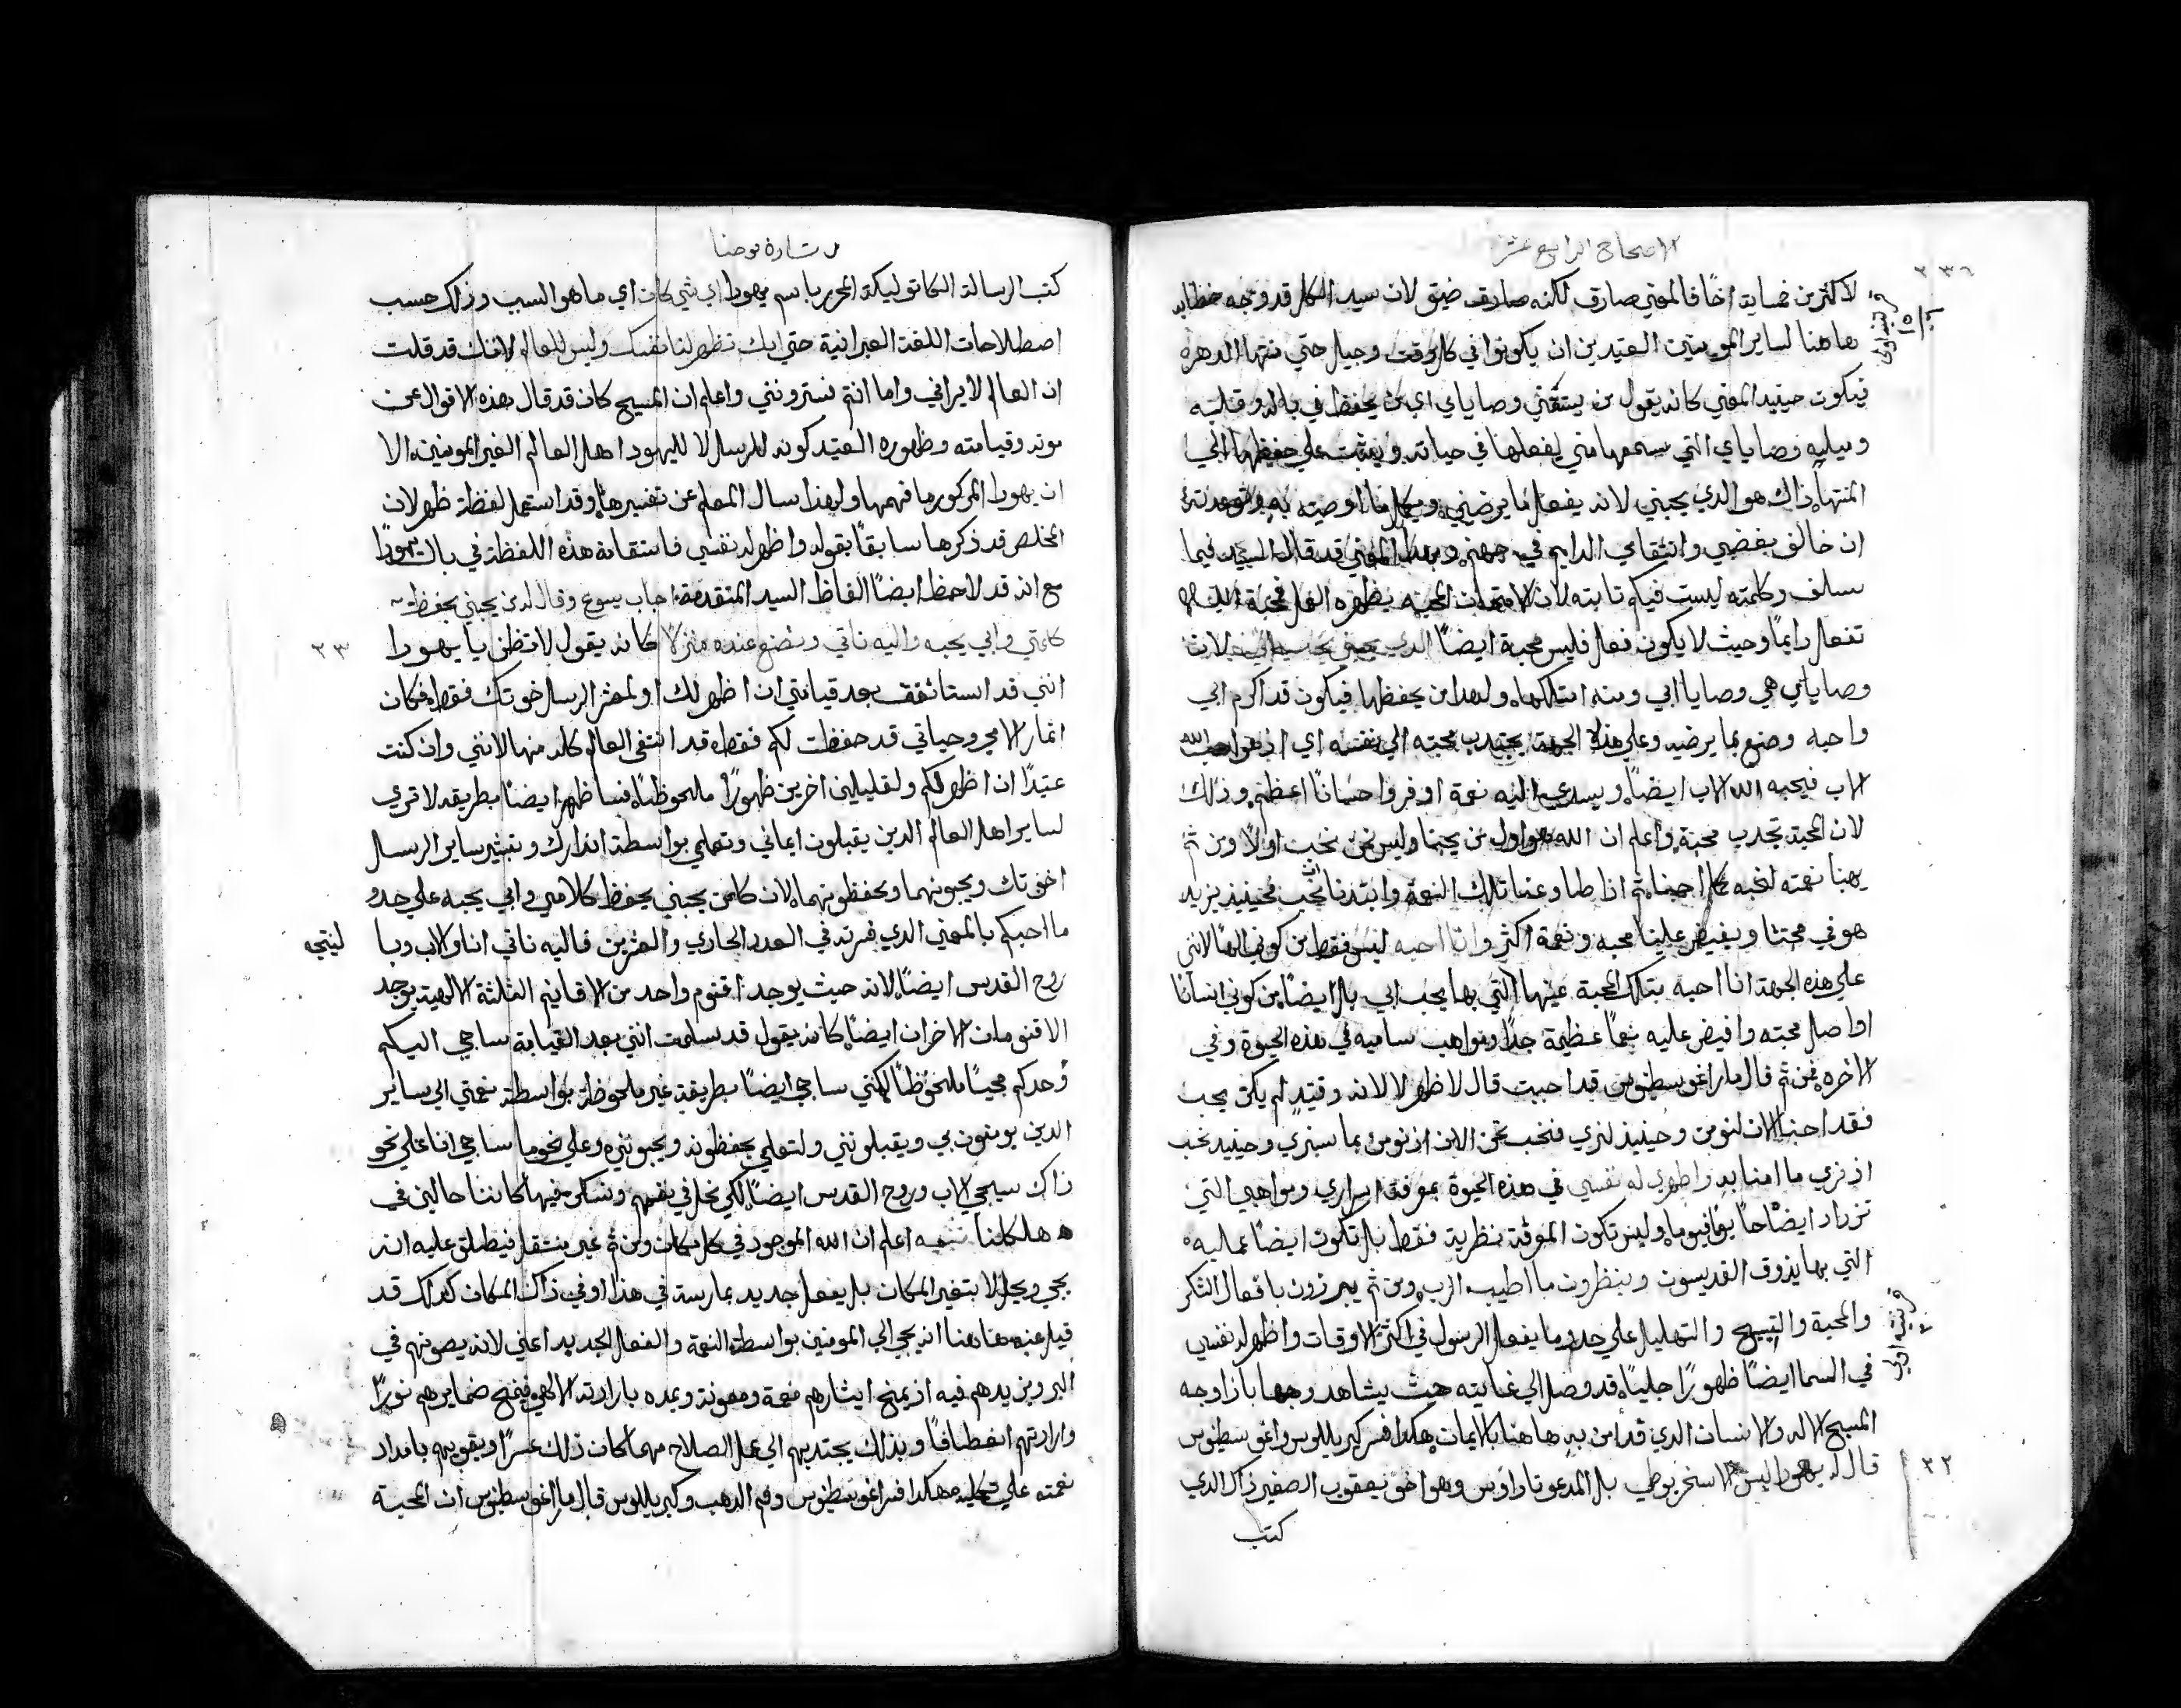 الاصحاح الرابع عشر
٢٣٦
لاكثرين فصاية اخًا فالمعني صادق لكنه صادق ضيق لان سيد الكل قد وجه خطابه
هاهنا لساير المومنين العتيدين ان يكونوا في كل وقت وجيل حتي منتها الدهر
فيكون حينيد المعني كانه يقول من يقتني وصاياي اي من يحفظ في باله وقلبه
وميله وصاياي التي سمعها مني ليفعلها في حياته ويثبت علي حفظها الي
المنتها ذاك هو الدي يحبني لانه يفعل ما يرضيني ويكمل ما اوصيته به
ان خالف بغضي وانتقامي الدايم في جهنم وبهدا المعني قد قال السيد فيما
سلف وكلمته ليست فيكم تابته لان امتحان المحبة يظهره الفعل فمحبة الله
تفعل دايمًا وحيث لا يكون فعل فليس محبة ايضًا الدي يحبني يحبه ابي لان
وصاياي هي وصايا ابي ومنه امتلكها ولهدا من يحفظها فيكون قد اكرم ابي
واحبه وصنع بما يرضيه وعلي هذه الجهة يجتدب محبته الي نفسه اي اذ هو احب الله
الاب فيحبه الله الاب ايضًا ويسدي اليه نعمة اوفر واحسانًا اعظم وذلك
لان المحبة تجدب محبة واعلم ان الله هو اول من يحبنا وليس نحن نحب اولًا ومن ثم
يهبنا نعمته لنحبه كما احبنا ثم اذا طاوعنا تلك النعمة وابتدنا نحب فحينيذ يزيد
هو في محبتنا ويفيض علينا محبه ونعمة اكثر وانا احبه ليس فقط من كوني الهًا لانني
علي هذه الجهة انا احبه بتلك المحبة عينها التي بها يحب ابي بل ايضًا من كوني انسانا
اواصل محبته وافيض عليه نعمًا عظيمة جدًا ومواهب ساميه في هذه الحيوة وفي
الاخره فمن ثم قال مار اغوسطنوس قد احببت قال لاظهر لا لانه وقتيدٍ لم يكن يحب
فقد احبنا الان لنومن وحينيذ لنري فنحب نحن الان اذ نومن بما سنري وحينيد نحب
اذ نري ما امنا به واظهر له نفسي في هذه الحيوة بمعرفة اسراري ومواهبي التي
تزداد ايضًا يومًا فيومًا وليس تكون المعرفة نظرية فقط بل تكون ايضًا عمليه
التي بها يذوق القديسون وينظرون ما اطيب الرب ومن ثم يبرزون بافعال الشكر
والمحبة والتسبيح والتهليل علي حدو ما يفعل الرسول في اكثر الاوقات واظهر له نفسي
في السما ايضًا ظهورًا جليًا قد وصل الي غايته حيث يشاهد وجهًا بازا وجه
المسيح الاله والانسان الدي قد امن به هاهنا بالايمان هكدا فسر كيريللوس واغوسطنوس
٢٢
قال له يهودا ليس الاسخريوطي بل المدعو تاداوس وهو اخو يعقوب الصغير ذاك الدي
كتب
بشارة يوحنا
كتب الرسالة الكاتوليكة المحرر باسم يهودا اي شي كان اي ما هو السبب وذلك حسب
اصطلاحات اللغة العبرانية حتي انك تظهر لنا نفسك وليس للعالم لانك قد قلت
ان العالم لا يراني واما انتم فسترونني واعلم ان المسيح كان قد قال هذه الاقوال عن
موته وقيامته وظهوره العتيد كونه للرسل لا لليهود اهل العالم الغير المومنين الا
ان يهودا المذكور ما فهمها ولهذا سال المعلم عن تفسيرها وقد استعمل لفظة ظهر لان
المخلص قد ذكرها سابقًا بقوله واظهر له نفسي فاستقامة هذه اللفظة في بال يهودا
مع انه قد لاحظ ايضًا الفاظ السيد المتقدمة اجاب يسوع وقال له من يحبني يحفظ
٢٣
كلمتي وابي يحبه واليه ناتي ونصنع عنده منزلًا كانه يقول لا تظن يا يهودا
انني قد استاثفت بعد قيامتي ان اظهر لك ولمعشر الرسل اخوتك فقط فكان
اثمار الامي وحياتي قد حفظت لكم فقط قد انتفى العالم كله منها لانني وان كنت
عتيدًا ان اظهر لكم ولقليلين اخرين ظهورًا ملحوظًا فساظهر ايضًا بطريقه لا تري
لساير اهل العالم الدين يقبلون ايماني وتعلمي بواسطة انذارك وتبشير ساير الرسل
اخوتك ويحبونهما ويحفظونهما لان كل من يحبني يحفظ كلامي وابي يحبه علي حدو
ما احبكم بالمعني الدي فسرته في العدد الحادي والعشرين فاليه ناتي انا والاب وبا
لنيتحه
روح القدس ايضًا لانه حيث يوجد اقنوم واحد من الاقانيم الثلثة الالهية يوجد
الاقنومان الاخران ايضًا كانه يقول قد سلمت انني بعد القيامة ساجي اليكم
وحدكم مجيًا ملحوظًا لكنني ساجي ايضًا بطريقة غير ملحوظة بواسطة نعمتي الي ساير
الدين يومنون بي ويقبلونني ولتعلمي يحفظونه ويحبونه وعلي نحو ما ساجي انا علي نحو
ذاك سيجي الاب وروح القدس ايضًا لكي نحل في نفسهم ونسكن فيها كاننا حالين في
هيكلنا تنبيه اعلم ان الله الموجود في كل مكان ومن ثم غير منتقل فيطلق عليه انه
يجي ويحل لا بتغير المكان بل بفعل جديد يمارسة في هذا او في ذاك المكان كداك قد
قيل عنه هاهنا انه يجي الي المومنين بواسطة النعمة والفعل الجديد اعني لانه يصونهم في
البر ويزيدهم فيه اذ يمنح ايثارهم نعمة ومعونة ويمده بارادته الالهي فيمنح ضمايرهم نورًا
وارادتهم انعطافًا وبذلك يجتدبهم الي عمل الصلاح مهما كان ذلك عسرًا ويقويهم بامداد
نعمته علي تكميله هكدا فسر اغوسطنوس وفم الدهب وكيريللوس قال مار اغوسطنوس ان المحبة